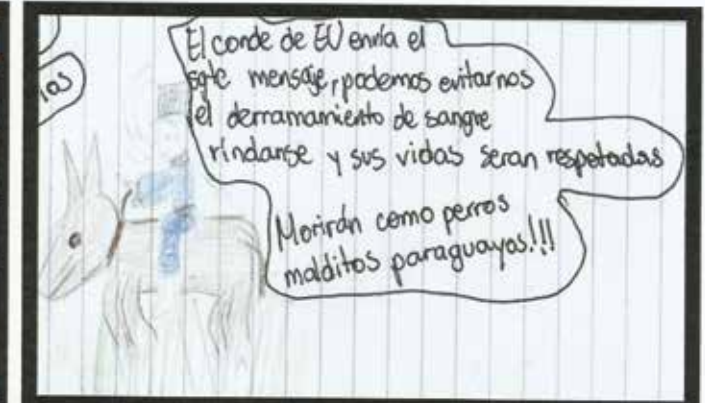 ias
El conde de EU envía el
sgte mensaje, podemos evitarnos
el derramamiento de sangre
rindanse y sus vidas seran respetadas
Morirán como perros
malditos paraguayos!!!